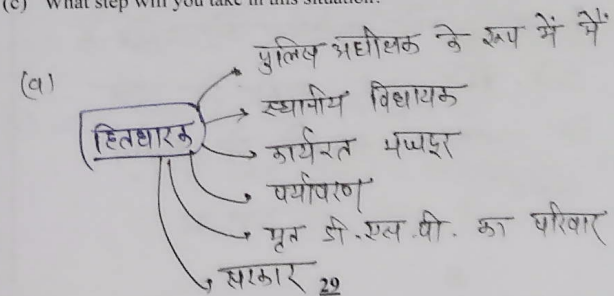 (c) What step will you take in this situation?
(a)
पुलिस अधीक्षक के रूप में मैं
स्थानीय विधायक
हितधारक
कार्यरत मजदूर
पर्यावरण
मृत डी.एस.पी. का परिवार
सरकार
29